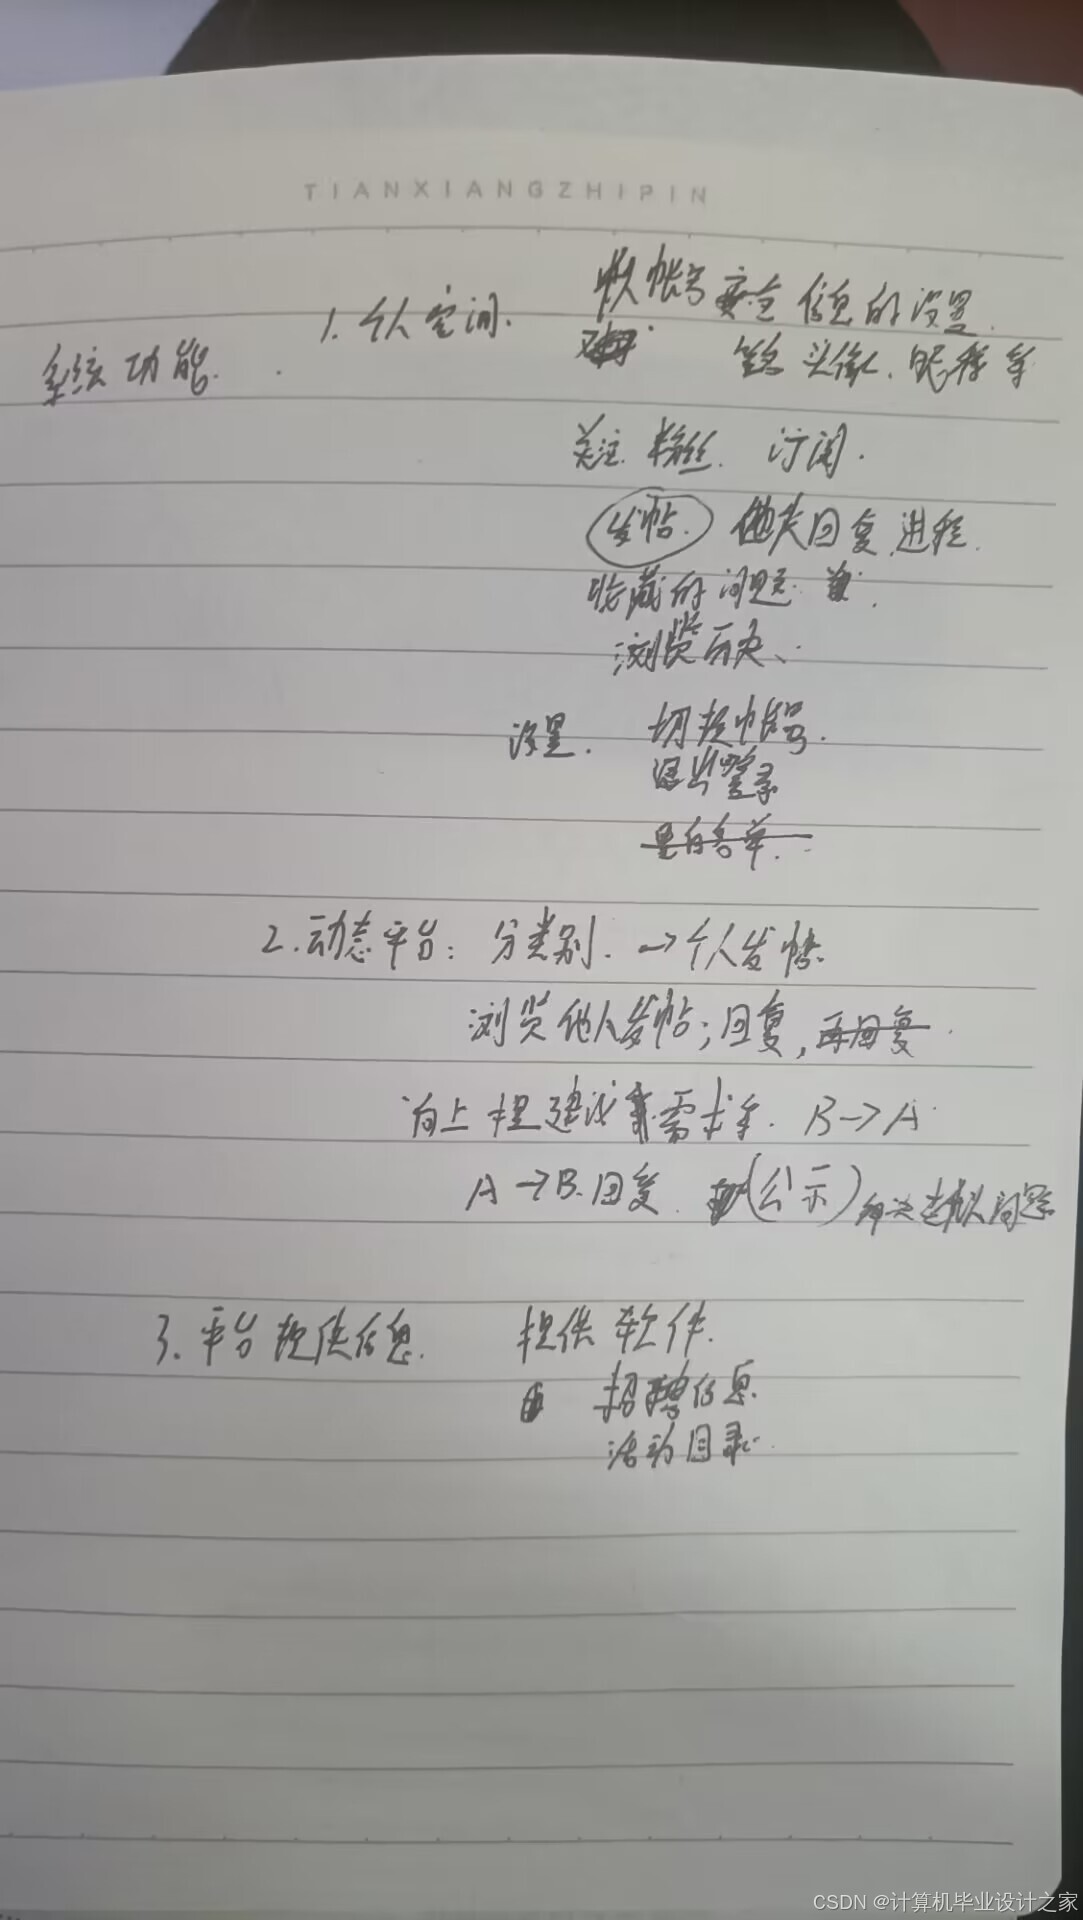 TIANXIANGZHIPIN
系统功能.
1. 个人空间.
帐号安全信息的设置.
头像、昵称等
关注. 粉丝. 订阅.
发帖. 回复进程.
收藏的问题.
浏览历史、
设置. 切换帐号.
退出登录
黑白名单.
2. 动态平台: 分类别. → 个人发帖.
浏览他人发帖; 回复, 再回复.
向上提建议 需求等. B→A
A→B. 回复. (公示) 解决 问题
3. 平台提供信息. 提供软件.
招聘信息.
活动目录.
CSDN @计算机毕业设计之家